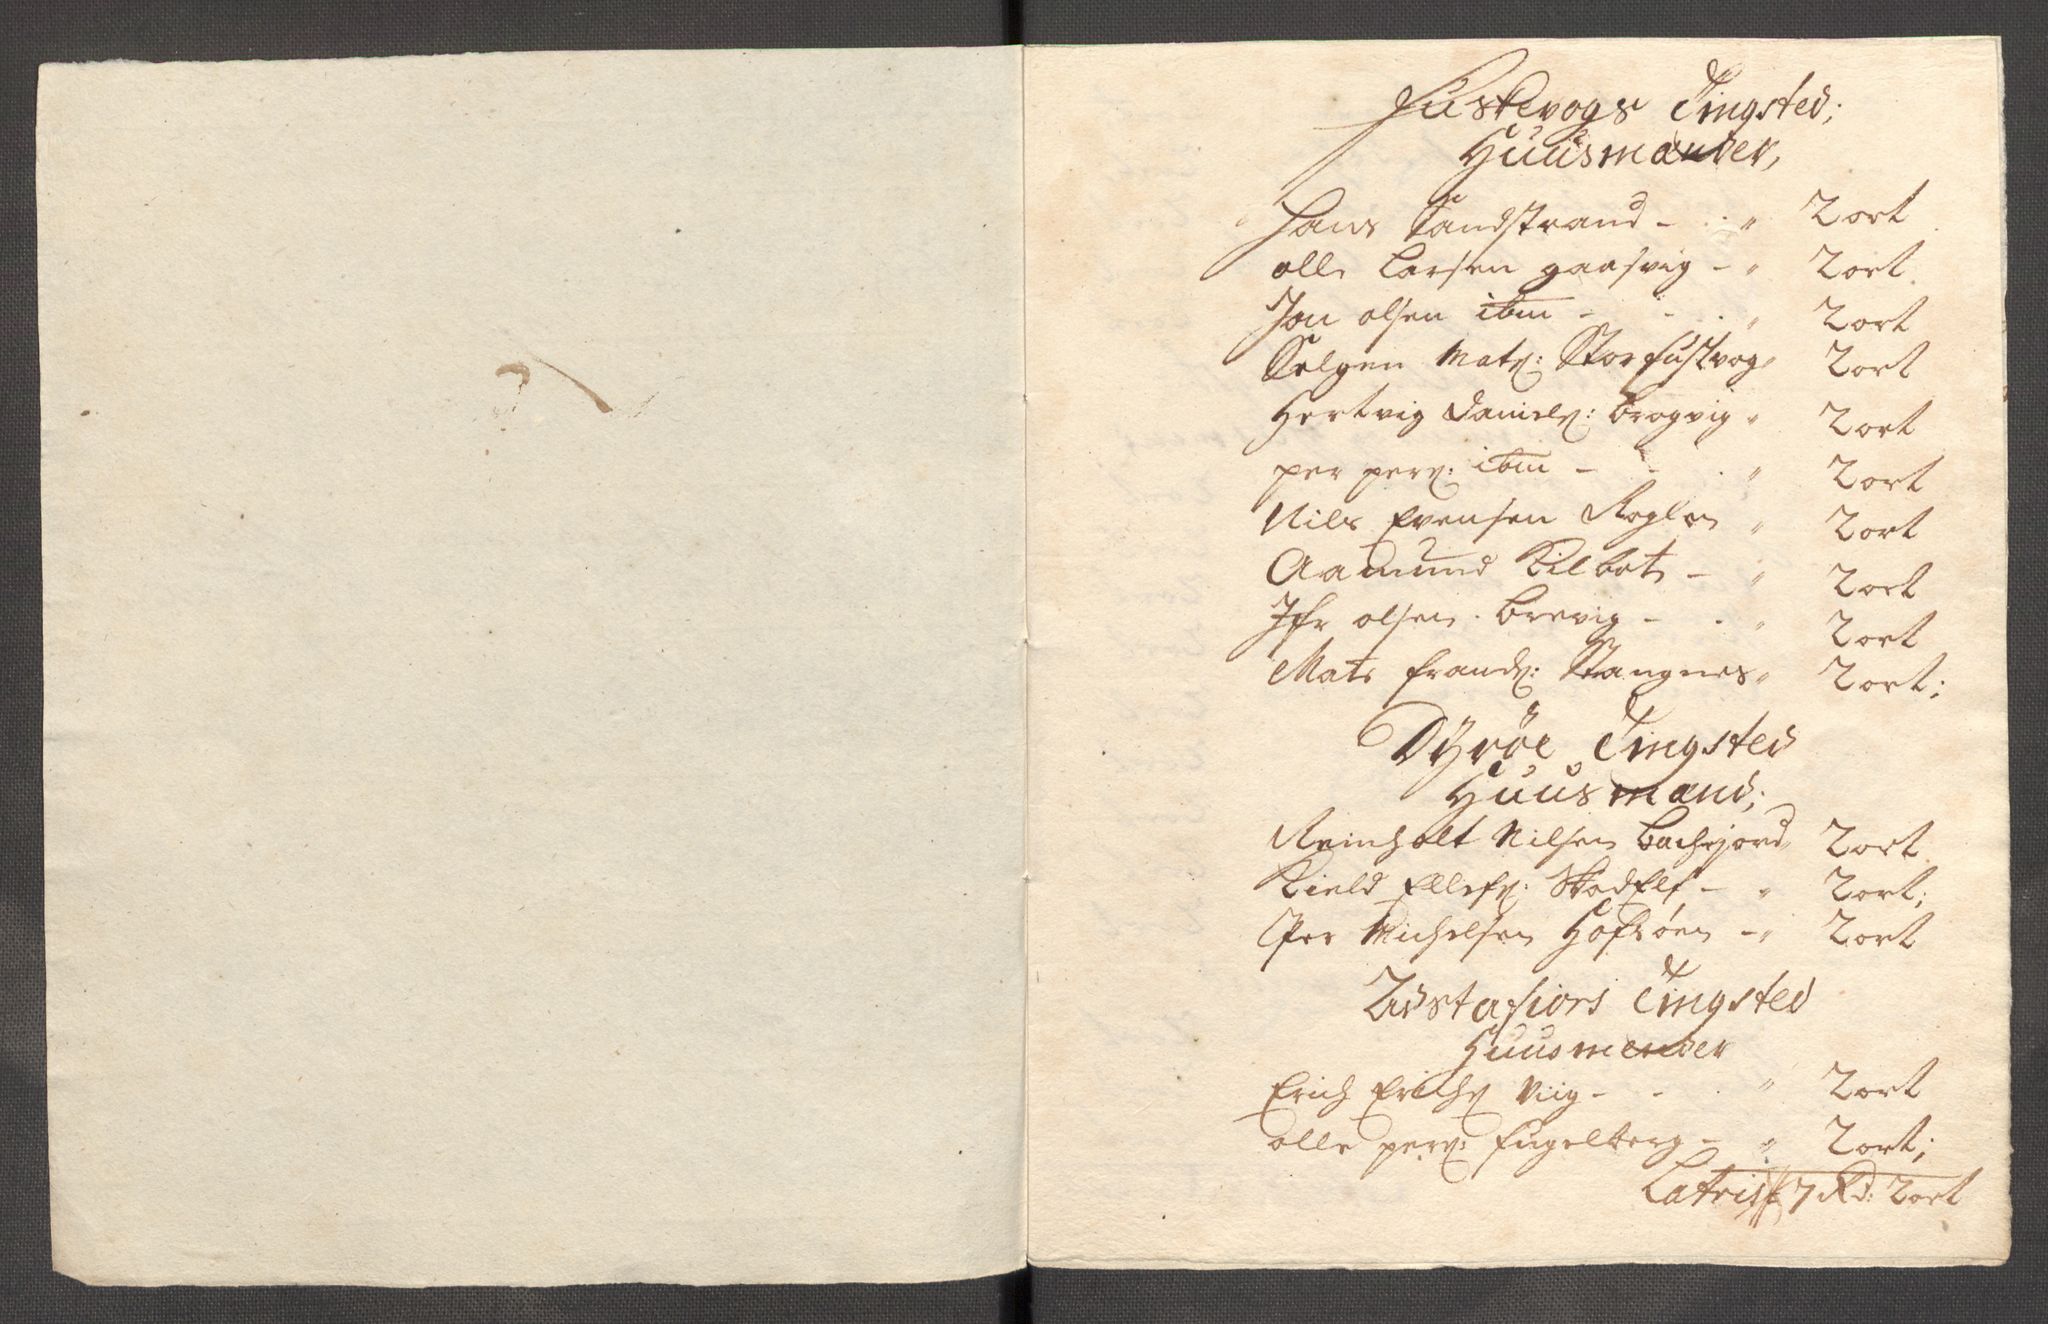 Fuskevogs Tingsted;
Huusmænder,
Hans Sandstrand - . " 2 ort
olle Larsen gaasvig - " 2 ort
Jon olsen ibm - - . " 2 ort
Selgen Mats: Storfuskvog " 2 ort
Hertvig Daniels: Brogvig " 2 ort
per pers: ibm - - . " 2 ort
Nils Evensen Roglen " 2 ort
Aamund Kilbotn - " 2 ort
Ifr olsen . Brevig - . " 2 ort
Mats Frands: Stangnes " 2 ort;
Dÿröe Tingsted
Huusmænd;
Reinholt Nilsen Bachejord " 2 ort
Kield Ellefs: SkodElf - " 2 ort;
Per Michelsen Hofsöen - " 2 ort
Astafiors Tingsted
Huusmender
Erich Erichs Viig - - . " 2 ort
olle pers: Fugelberg - " 2 ort;
Latris 7 Rd: 2 ort